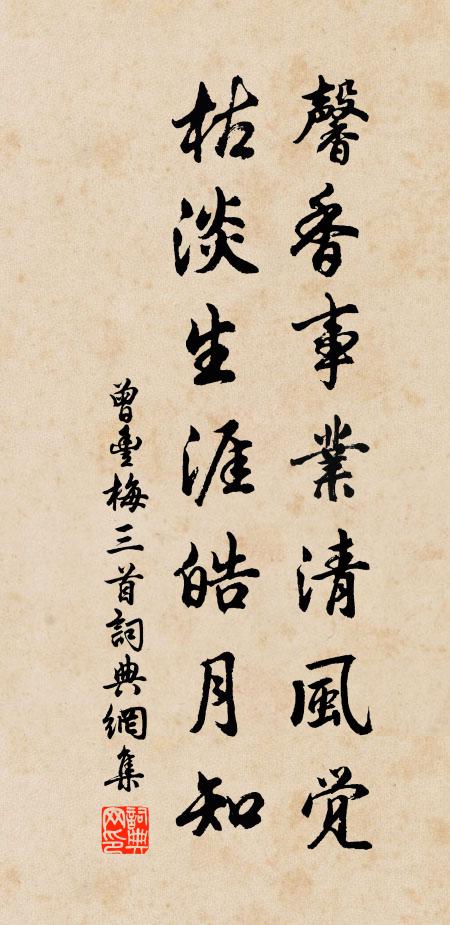 馨香事業清風觉
枯淡生涯皓月知
曾豐梅三首詞典網集
詞典網印